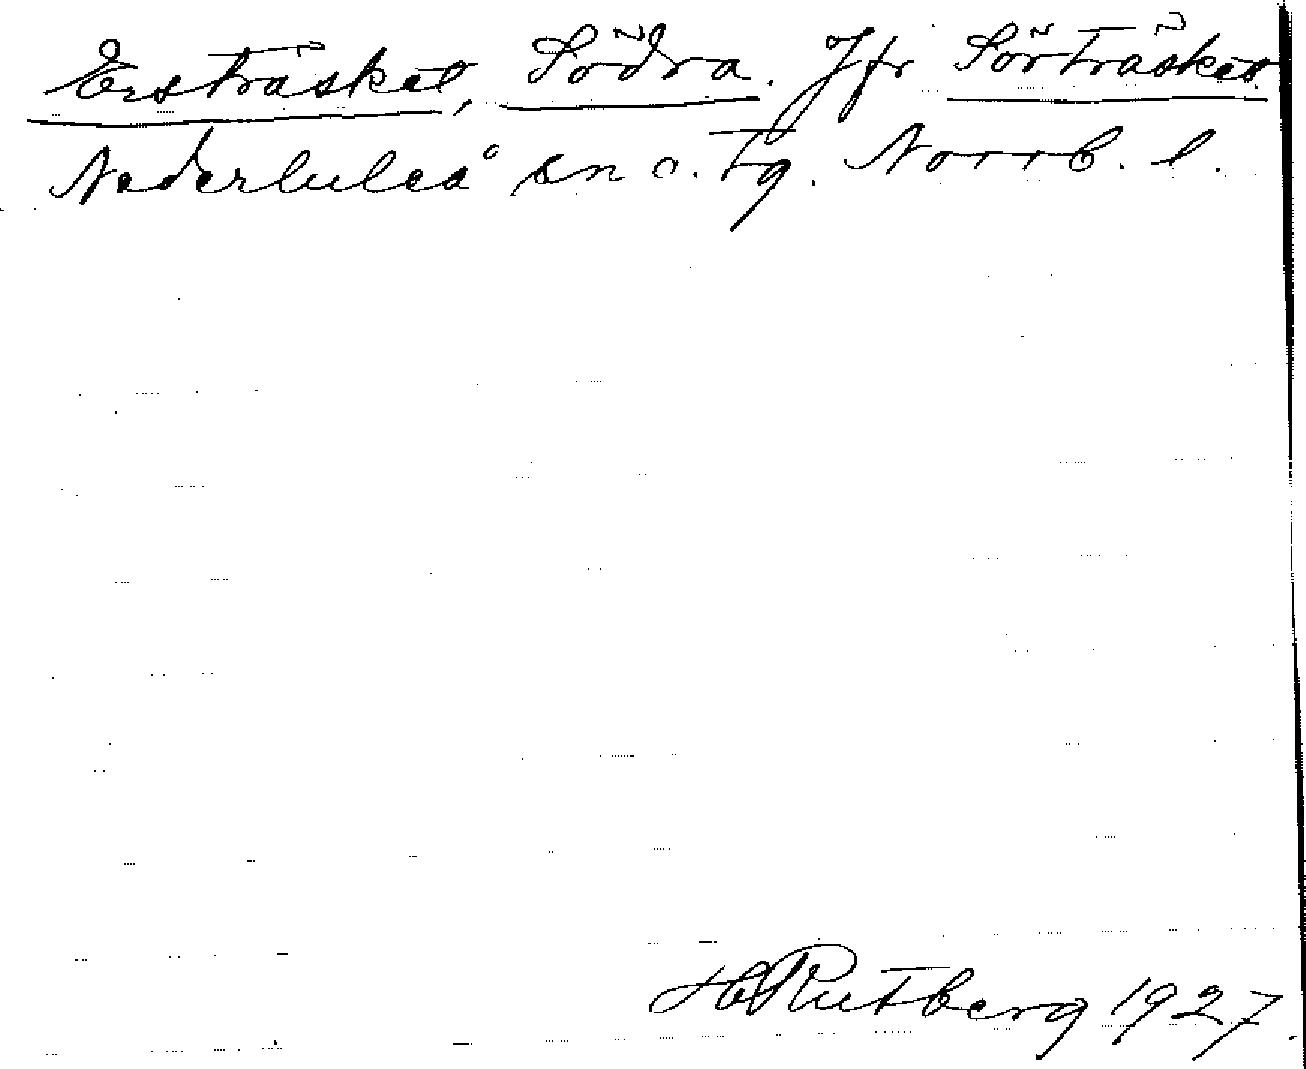 Ersträsket, Södra. Jfr Sörträsket
Nederluleå sn o. tg. Norrb. l.
H Rutberg 1927.